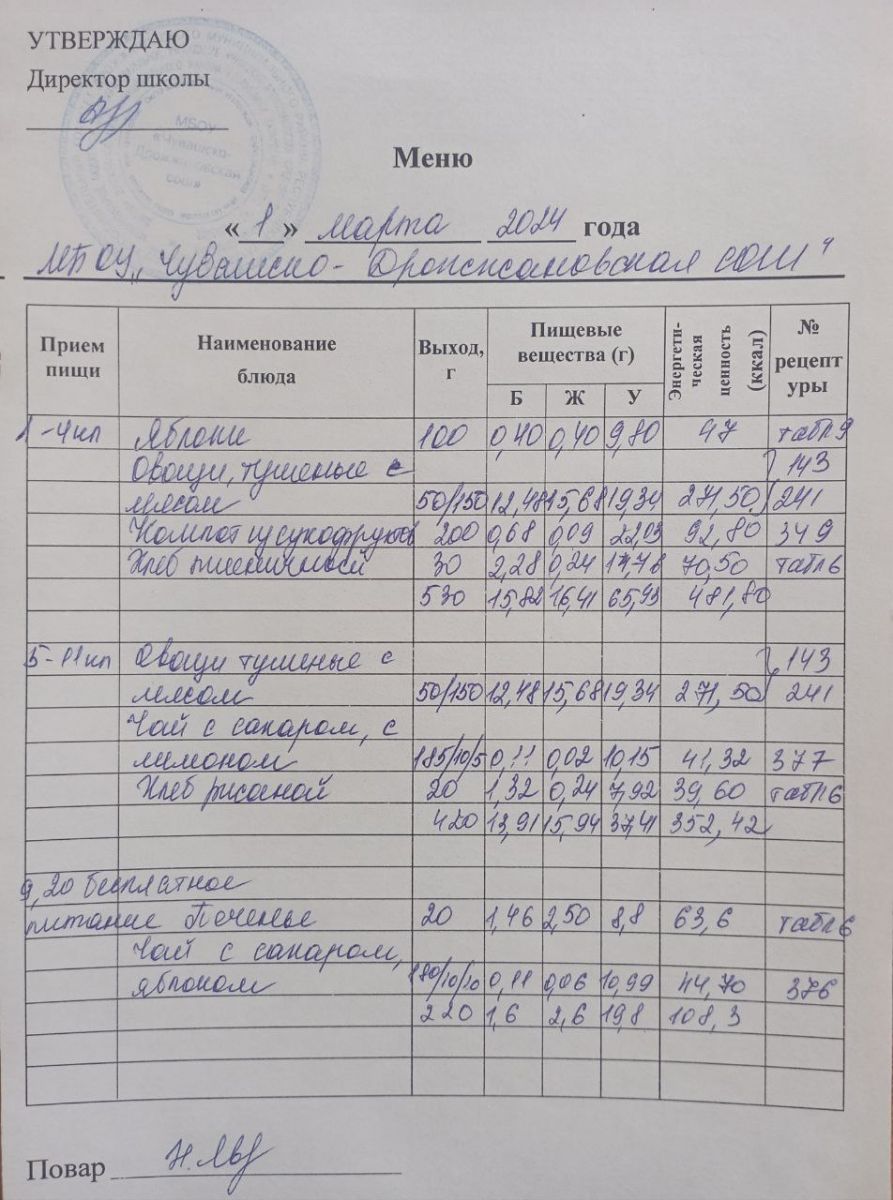 УТВЕРЖДАЮ
Директор школы
МБОУ
«Чувашско-
Дрожжановская
сош»
Меню
« 1 » марта 2024 года
МБОУ „Чувашско-Дрожжановская СОШ"
Прием пищи Наименование блюда Выход, г Пищевые вещества (г) Б Ж У Энергети-ческая ценность (ккал) № рецептуры
1-4кл Яблоки 100 0,40 0,40 9,80 47 табл9
Овощи, тушеные с 143
мясом 50/150 12,48 15,68 19,34 271,50 241
Компот из сухофруктов 200 0,68 0,09 22,03 92,80 349
Хлеб пшеничный 30 2,28 0,24 14,76 70,50 табл6
530 15,82 16,41 65,93 481,80
5-11кл Овощи тушеные с 143
мясом 50/150 12,48 15,68 19,34 271,50 241
Чай с сахаром, с
лимоном 185/10/5 0,11 0,02 10,15 41,32 377
Хлеб ржаной 20 1,32 0,24 7,92 39,60 табл6
420 13,91 15,94 37,41 352,42
9,20 бесплатное
питание Печенье 20 1,46 2,50 8,8 63,6 табл6
Чай с сахаром,
яблоком 180/10/20 0,11 0,06 10,99 44,70 376
220 1,6 2,6 19,8 108,3
Повар